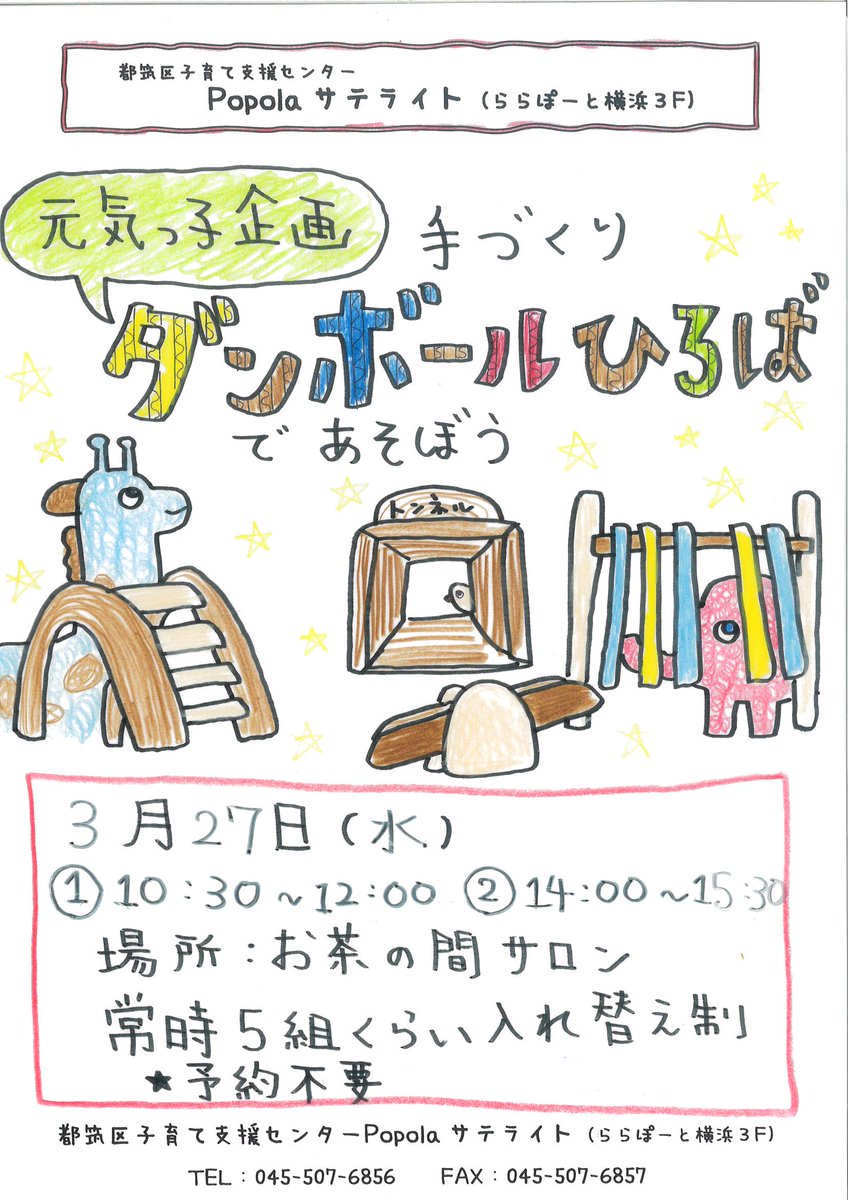 都筑区子育て支援センター
Popola サテライト (ららぽーと横浜3F)
元気っ子企画
手づくり
ダンボールひろば
であそぼう
トンネル
3月27日(水)
①10:30~12:00 ②14:00~15:30
場所:お茶の間サロン
常時5組くらい入れ替え制
★予約不要
都筑区子育て支援センターPopola サテライト (ららぽーと横浜3F)
TEL:045-507-6856 FAX:045-507-6857